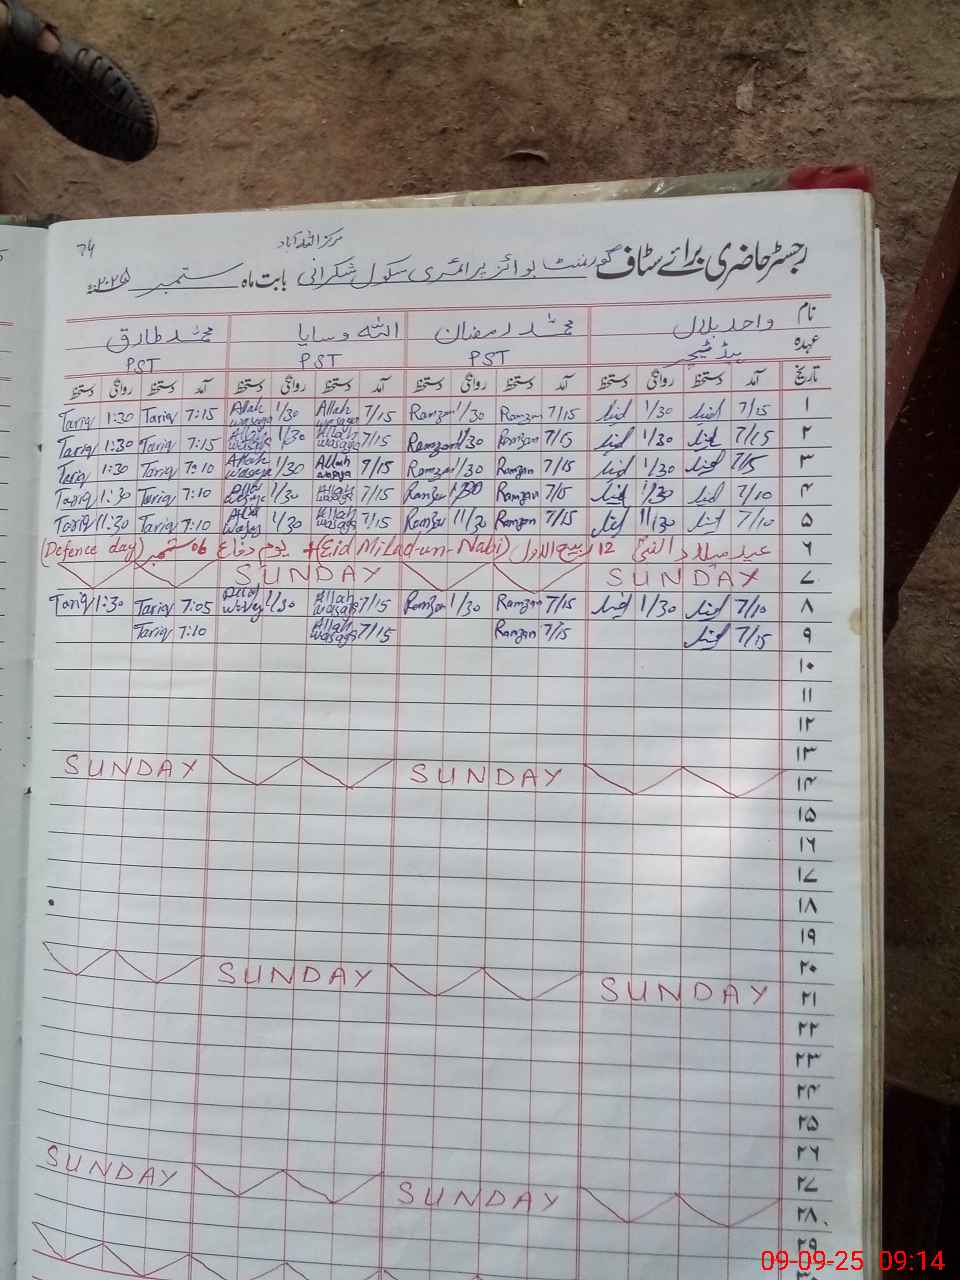 74
مرکز اللہ آباد
رجسٹر حاضری برائے سٹاف گورنمنٹ بوائز پرائمری سکول شکرانی بابت ماہ ستمبر ۲۰۲۵ء
نام واحد بلال محمد رمضان اللہ وسایا محمد طارق
عہدہ ہیڈ ٹیچر PST PST PST
تاریخ آمد دستخط روانگی دستخط آمد دستخط روانگی دستخط آمد دستخط روانگی دستخط آمد دستخط روانگی دستخط
Tariq 1:30 Tariq 7:15 Allah wasaya 1/30 Allah wasaya 7/15 Ramzan 1/30 Ramzan 7/15 1/30 7/15 ۱
Tariq 1:30 Tariq 7:15 Allah wasaya 1/30 Allah wasaya 7/15 Ramzan 1/30 Ramzan 7/15 1/30 7/15 ۲
Tariq 1:30 Tariq 7:10 Allah wasaya 1/30 Allah wasaya 7/15 Ramzan 1/30 Ramzan 7/15 1/30 7/15 ۳
Tariq 1:30 Tariq 7:10 1/30 Allah wasaya 7/15 Ramzan 1/30 Ramzan 7/15 1/30 7/10 ۴
Tariq 11:30 Tariq 7:10 1/30 Allah wasaya 7/15 Ramzan 11/30 Ramzan 7/15 11/30 7/10 ۵
۶ عید میلاد النبیؐ 12 ربیع الاول (Eid Milad-un-Nabi) + یوم دفاع 06 ستمبر (Defence day)
SUNDAY SUNDAY ۷
Tariq 1:30 Tariq 7:05 1/30 Allah wasaya 7/15 Ramzan 1/30 Ramzan 7/15 1/30 7/10 ۸
Tariq 7:10 Allah wasaya 7/15 Ramzan 7/15 7/15 ۹
۱۰
۱۱
۱۲
۱۳
SUNDAY SUNDAY ۱۴
۱۵
۱۶
۱۷
۱۸
۱۹
۲۰
SUNDAY SUNDAY ۲۱
۲۲
۲۳
۲۴
۲۵
۲۶
۲۷
SUNDAY SUNDAY ۲۸
۲۹
09-09-25 09:14